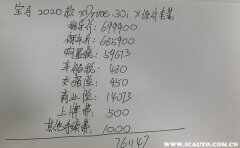 宝马2020款 xDrive30i X设计套装
指导价：699900
裸车价：665900
购置税：59613
车船税：480
交强险：950
商业险：14073
上牌费：500
其他手续费：1000
761147
www.5CAUTO.COM.CN